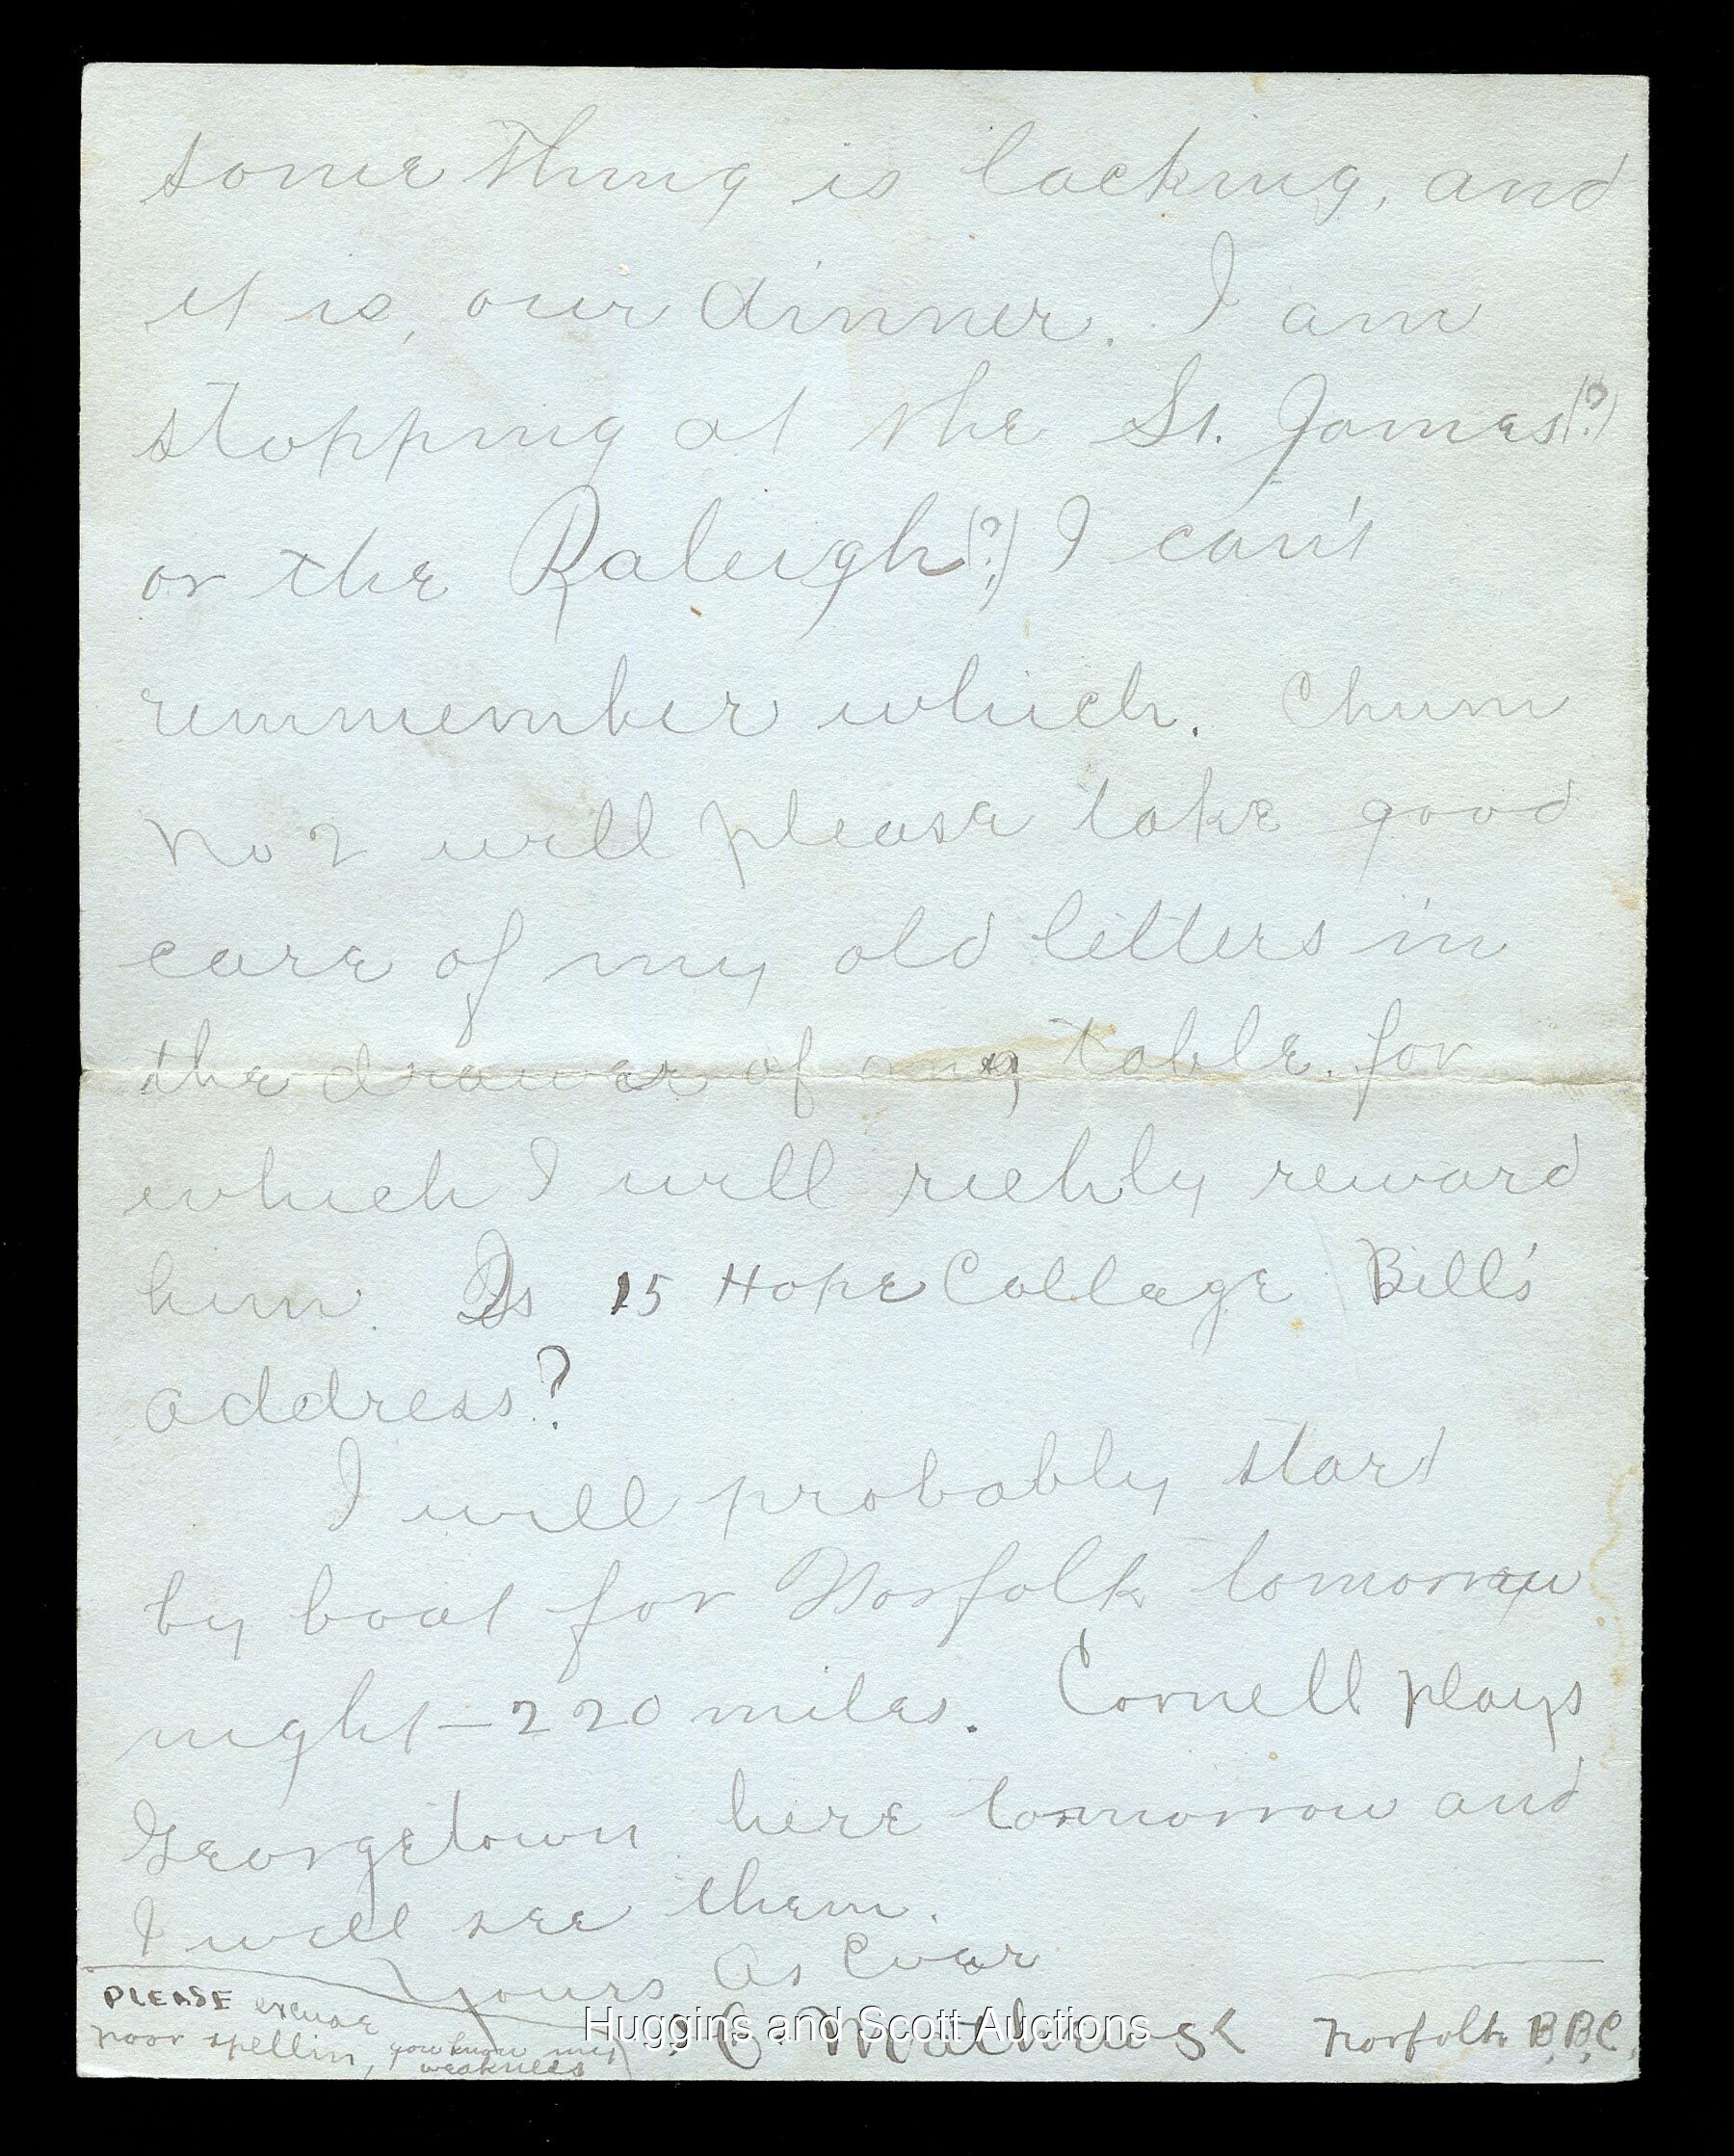 some thing is lacking, and
it is, our dinner. I am
stopping at the St. James(?)
or the Raleigh(?) I can't
remmember which. Chum
No 2 will please take good
care of my old letters in
the drawer of my table. for
which I will richly reward
him. Is 15 Hope Collage Bill's
address?
I will probably start
by boat for Norfolk tomorrow
night - 220 miles. Cornell plays
Georgetown here tommorrow and
I will see them.
Yours As Ever
C. Norfolk B.B.C.
PLEASE excuse
poor spellin, you know my
weakness
Huggins and Scott Auctions